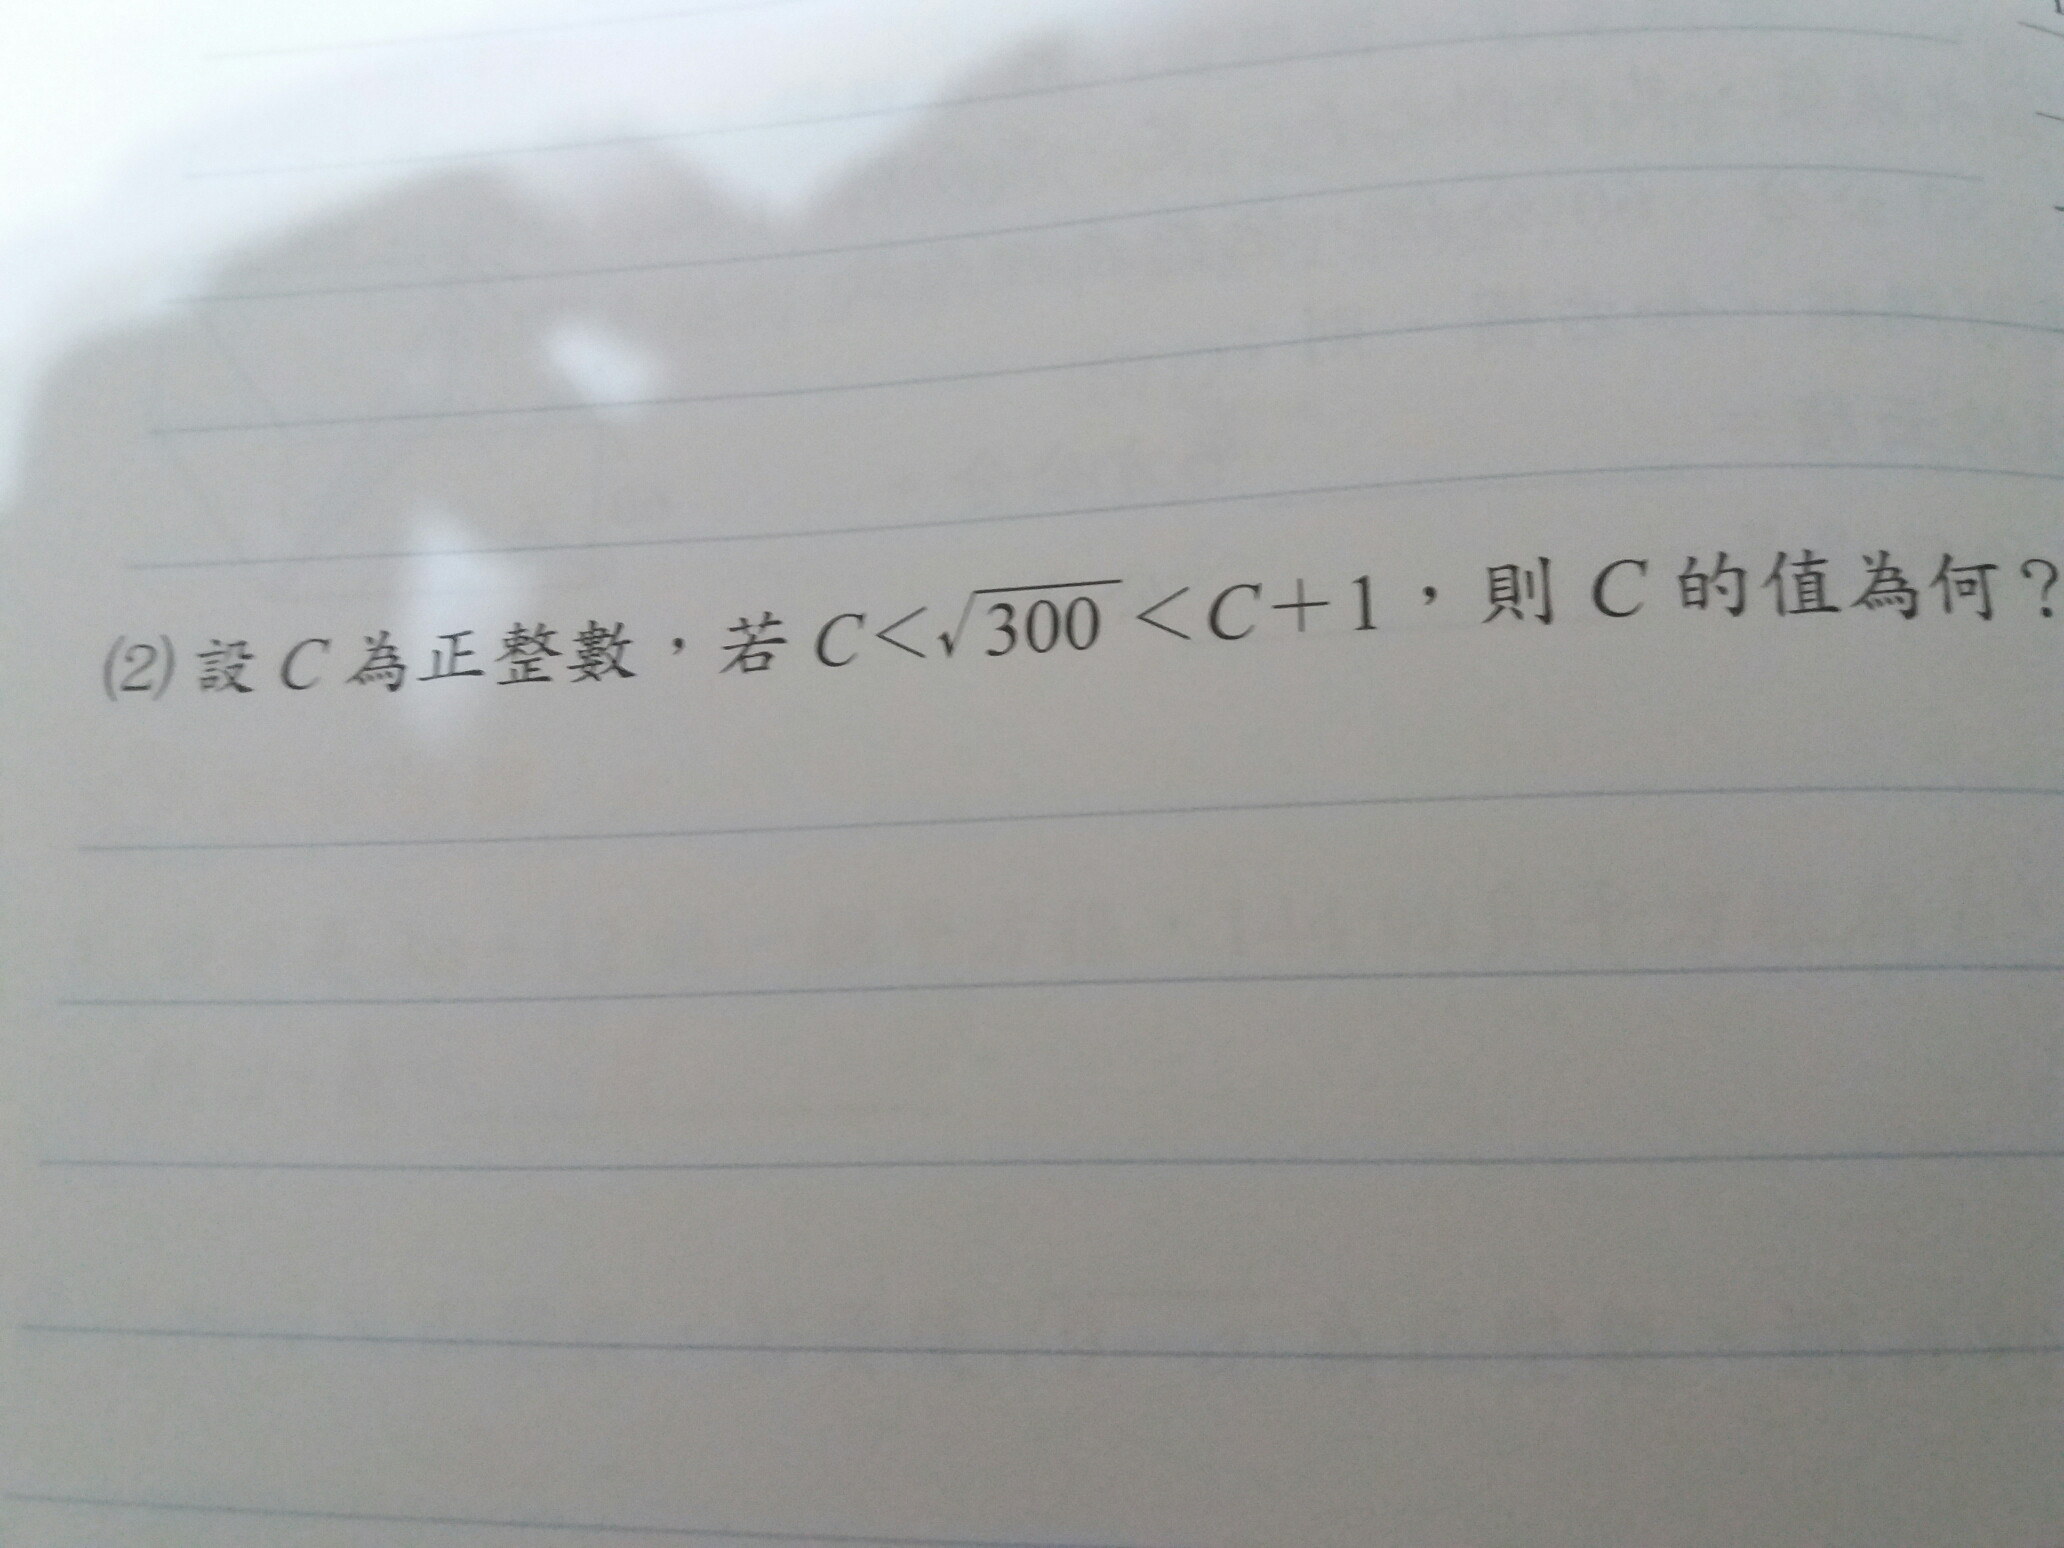 (2) 設 C 為正整數，若 C<√300<C+1，則 C 的值為何？